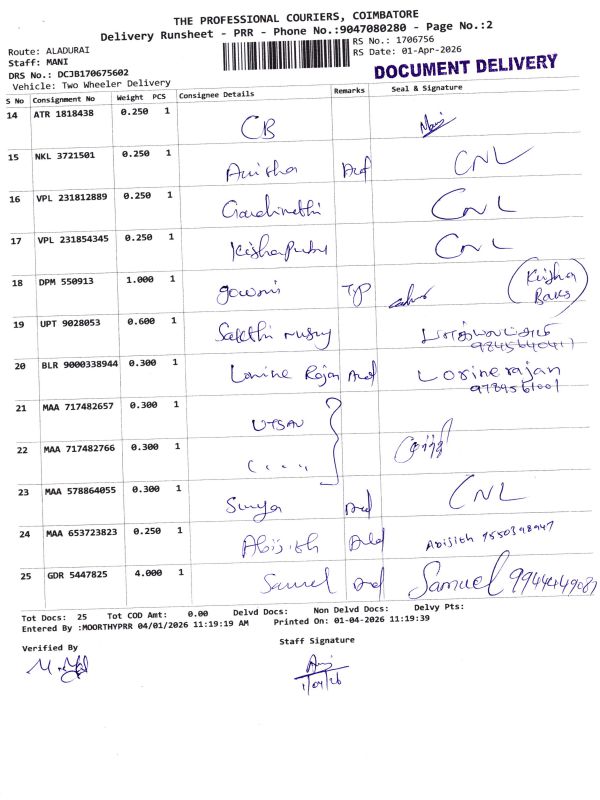 THE PROFESSIONAL COURIERS, COIMBATORE
Delivery Runsheet - PRR - Phone No.:9047080280 - Page No.:2
Route: ALADURAI
Staff: MANI
DRS No.: DCJB170675602
Vehicle: Two Wheeler Delivery
RS No.: 1706756
RS Date: 01-Apr-2026
DOCUMENT DELIVERY
S No Consignment No Weight PCS Consignee Details Remarks Seal & Signature
14 ATR 1818438 0.250 1 CB
15 NKL 3721501 0.250 1 Anisha CNL
16 VPL 231812889 0.250 1 CNL
17 VPL 231854345 0.250 1 CNL
18 DPM 550913 1.000 1 gowri
19 UPT 9028053 0.600 1 Sakthi
20 BLR 9000338944 0.300 1 Rajan Lorine rajan
21 MAA 717482657 0.300 1 UTSAV
22 MAA 717482766 0.300 1
23 MAA 578864055 0.300 1 Surya CNL
24 MAA 653723823 0.250 1 Abijith Abijith
25 GDR 5447825 4.000 1 Samuel Samuel
Tot Docs: 25 Tot COD Amt: 0.00 Delvd Docs: Non Delvd Docs: Delvy Pts:
Entered By :MOORTHYPRR 04/01/2026 11:19:19 AM Printed On: 01-04-2026 11:19:39
Verified By
Staff Signature
1/04/26